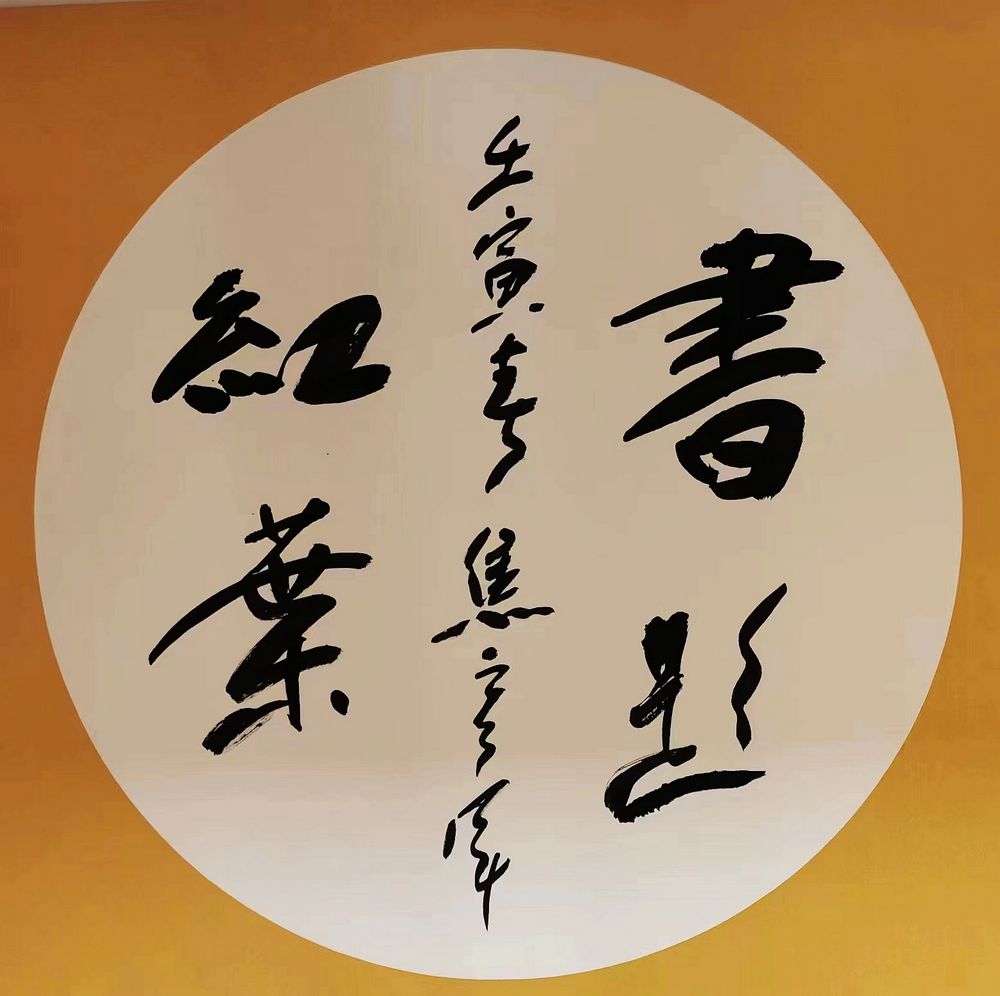 書題
壬寅春 焦
紅葉